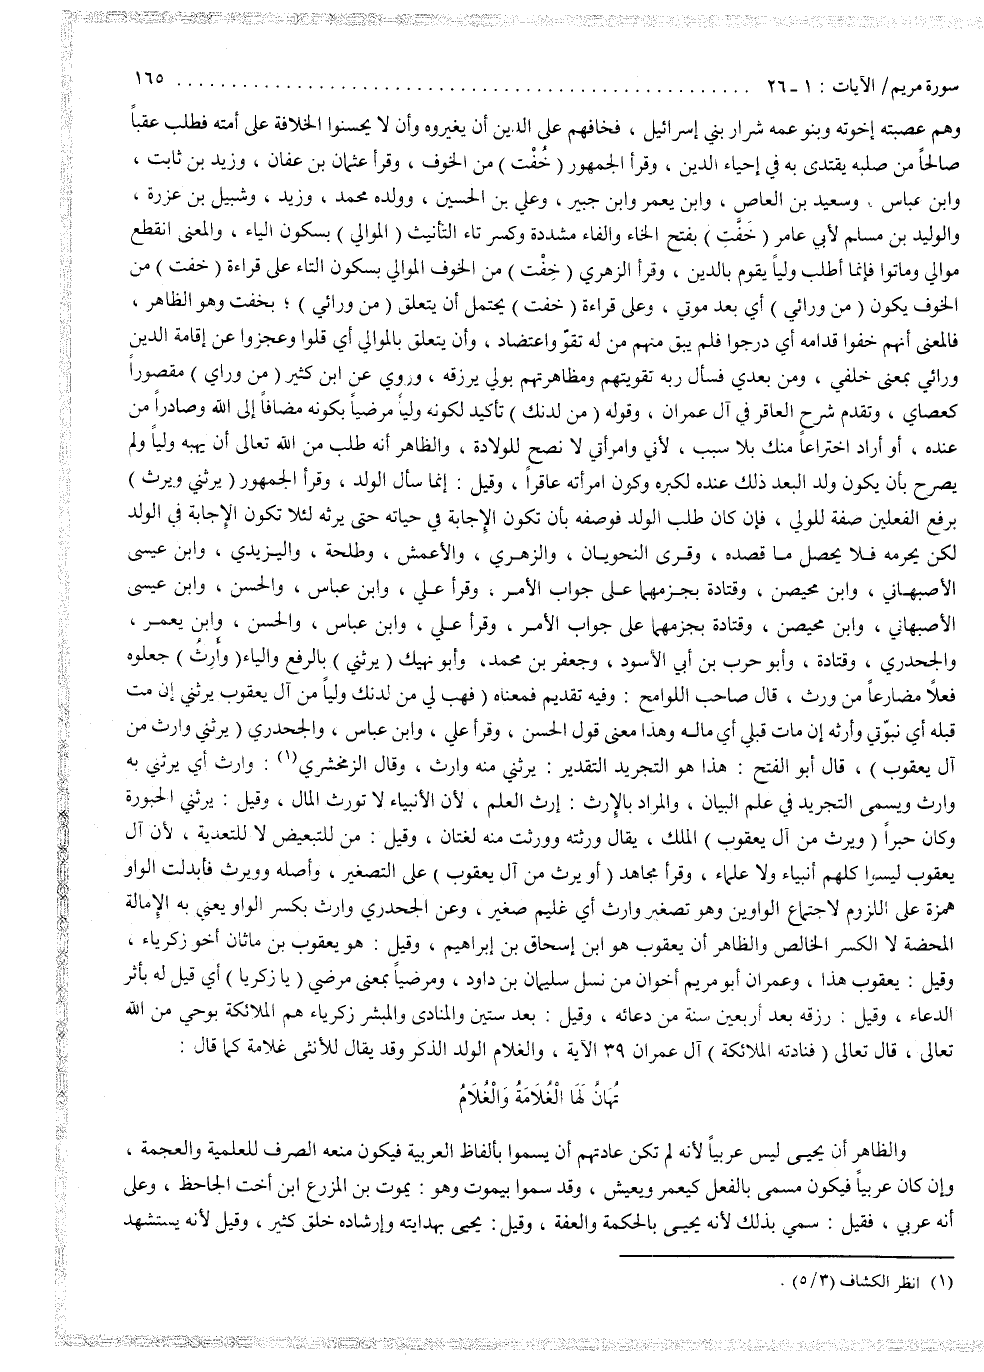 سورة مريم/ الآيات : ١ ـ ٢٦ . . . . . . . . . . . . . . . . . . . . . . . . . . . . . . . . . . . . . . . . . . . . . . . . . . . . . . ١٦٥
وهم عصبته إخوته وبنو عمه شرار بني إسرائيل ، فخافهم على الدين أن يغيروه وأن لا يحسنوا الخلافة على أمته فطلب عقباً
صالحاً من صلبه يقتدى به في إحياء الدين ، وقرأ الجمهور ( خُفْت ) من الخوف ، وقرأ عثمان بن عفان ، وزيد بن ثابت ،
وابن عباس ، وسعيد بن العاص ، وابن يعمر وابن جبير ، وعلي بن الحسين ، وولده محمد ، وزيد ، وشبيل بن عزرة ،
والوليد بن مسلم لأبي عامر ( خَفَّتِ ) بفتح الخاء والفاء مشددة وكسر تاء التأنيث ( الموالي ) بسكون الياء ، والمعنى انقطع
موالي وماتوا فإنما أطلب ولياً يقوم بالدين ، وقرأ الزهري ( خِفْت ) من الخوف الموالي بسكون التاء على قراءة ( خفت ) من
الخوف يكون ( من ورائي ) أي بعد موتي ، وعلى قراءة ( خفت ) يحتمل أن يتعلق ( من ورائي ) ؛ بخفت وهو الظاهر ،
فالمعنى أنهم خفوا قدامه أي درجوا فلم يبق منهم من له تقوّ واعتضاد ، وأن يتعلق بالموالي أي قلوا وعجزوا عن إقامة الدين
ورائي بمعنى خلفي ، ومن بعدي فسأل ربه تقويتهم ومظاهرتهم بولي يرزقه ، وروي عن ابن كثير ( من وراي ) مقصوراً
كعصاي ، وتقدم شرح العاقر في آل عمران ، وقوله ( من لدنك ) تأكيد لكونه ولياً مرضياً بكونه مضافاً إلى الله وصادراً من
عنده ، أو أراد اختراعاً منك بلا سبب ، لأني وامرأتي لا نصح للولادة ، والظاهر أنه طلب من الله تعالى أن يهبه ولياً ولم
يصرح بأن يكون ولد البعد ذلك عنده لكبره وكون امرأته عاقراً ، وقيل : إنما سأل الولد ، وقرأ الجمهور ( يرثني ويرث )
برفع الفعلين صفة للولي ، فإن كان طلب الولد فوصفه بأن تكون الإجابة في حياته حتى يرثه لئلا تكون الإجابة في الولد
لكن يحرمه فلا يحصل ما قصده ، وقرى النحويان ، والزهري ، والأعمش ، وطلحة ، واليزيدي ، وابن عيسى
الأصبهاني ، وابن محيصن ، وقتادة بجزمهما على جواب الأمر ، وقرأ علي ، وابن عباس ، والحسن ، وابن عيسى
الأصبهاني ، وابن محيصن ، وقتادة بجزمهما على جواب الأمر ، وقرأ علي ، وابن عباس ، والحسن ، وابن يعمر ،
والجحدري ، وقتادة ، وأبو حرب بن أبي الأسود ، وجعفر بن محمد، وأبو نهيك ( يرثني ) بالرفع والياء( وأَرِثُ ) جعلوه
فعلًا مضارعاً من ورث ، قال صاحب اللوامح : وفيه تقديم فمعناه ( فهب لي من لدنك ولياً من آل يعقوب يرثني إن مت
قبله أي نبوّتي وأرثه إن مات قبلي أي ماله وهذا معنى قول الحسن ، وقرأ علي ، وابن عباس ، والجحدري ( يرثني وارث من
آل يعقوب ) ، قال أبو الفتح : هذا هو التجريد التقدير : يرثني منه وارث ، وقال الزمخشري(١) : وارث أي يرثني به
وارث ويسمى التجريد في علم البيان ، والمراد بالإرث : إرث العلم ، لأن الأنبياء لا تورث المال ، وقيل : يرثني الحبورة
وكان حبراً ( ويرث من آل يعقوب ) الملك ، يقال ورثته وورثت منه لغتان ، وقيل : من للتبعيض لا للتعدية ، لأن آل
يعقوب ليسوا كلهم أنبياء ولا علماء ، وقرأ مجاهد ( أو يرث من آل يعقوب ) على التصغير ، وأصله وويرث فأبدلت الواو
همزة على اللزوم لاجتماع الواوين وهو تصغير وارث أي غليم صغير ، وعن الجحدري وارث بكسر الواو يعني به الإمالة
المحضة لا الكسر الخالص والظاهر أن يعقوب هو ابن إسحاق بن إبراهيم ، وقيل : هو يعقوب بن ماثان أخو زكرياء ،
وقيل : يعقوب هذا ، وعمران أبو مريم أخوان من نسل سليمان بن داود ، ومرضياً بمعنى مرضي ( يا زكريا ) أي قيل له بأثر
الدعاء ، وقيل : رزقه بعد أربعين سنة من دعائه ، وقيل : بعد ستين والمنادى والمبشر زكرياء هم الملائكة بوحي من الله
تعالى ، قال تعالى ( فنادته الملائكة ) آل عمران ٣٩ الآية ، والغلام الولد الذكر وقد يقال للأنثى غلامة كما قال :
تُهَانُ لَهَا الْغُلَامَةُ وَالْغُلَامُ
والظاهر أن يحيى ليس عربياً لأنه لم تكن عادتهم أن يسموا بألفاظ العربية فيكون منعه الصرف للعلمية والعجمة ،
وإن كان عربياً فيكون مسمى بالفعل كيعمر ويعيش ، وقد سموا بيموت وهو : يموت بن المزرع ابن أخت الجاحظ ، وعلى
أنه عربي ، فقيل : سمي بذلك لأنه يحيى بالحكمة والعفة ، وقيل : يحيى بهدايته وإرشاده خلق كثير ، وقيل لأنه يستشهد
(١) انظر الكشاف (٥/٣) .